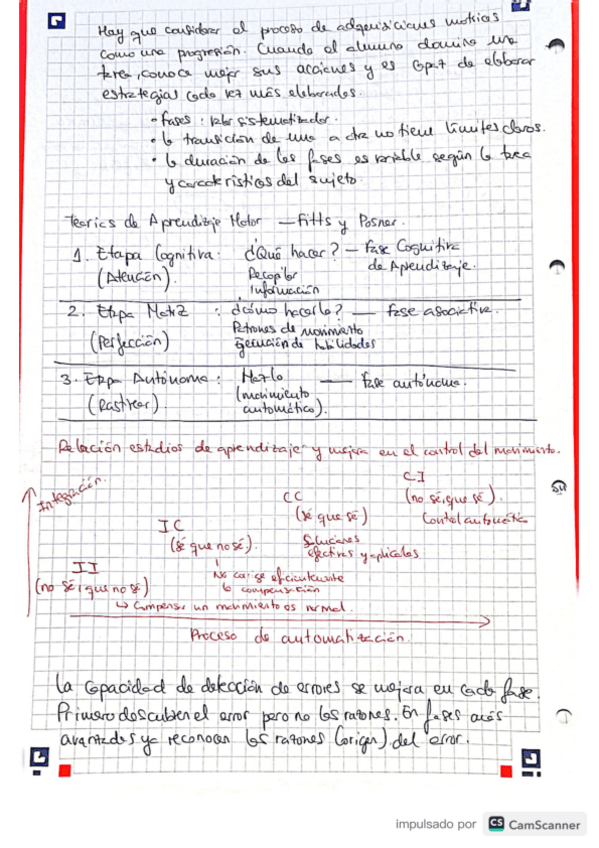 Hay que considerar el proceso de adquisiciones motrices
como una progresión. Cuando el alumno domina una
tarea, conoce mejor sus acciones y es capaz de elaborar
estrategias cada vez más elaboradas.
• fases: valor sistematizador.
• la transición de una a otra no tiene límites claros.
• la duración de las fases es variable según la tarea
y características del sujeto.
Teorías de Aprendizaje Motor — Fitts y Posner.
1. Etapa Cognitiva: ¿Qué hacer? — Fase Cognitiva
(Atención). Recopilar de Aprendizaje.
Información
2. Etapa Motriz : ¿cómo hacerlo? — Fase asociativa.
(Perfección) Patrones de movimiento
Ejecución de habilidades
3. Etapa Autónoma: Hazlo — Fase autónoma.
(Rastrear). (movimiento
automático).
Relación estadios de aprendizaje y mejora en el control del movimiento.
Integración.
CI
CC (no sé, que sé).
(sé que sé) Control automático
IC Soluciones
(sé que no sé). efectivas y aplicadas
II No corrige eficientemente
(no sé, que no sé) la compensación
↳ Compensar un movimiento es normal.
Proceso de automatización.
La capacidad de detección de errores se mejora en cada fase.
Primero descubren el error pero no las razones. En fases más
avanzadas ya reconocen las razones (origen) del error.
impulsado por CS CamScanner